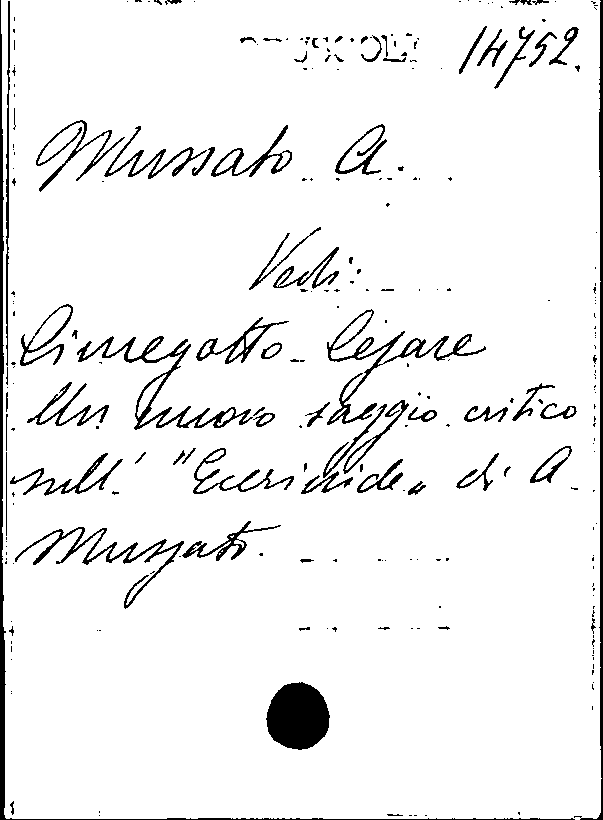 14752.
Mussato A.
Vedi:
Cimegotto Cesare
Un nuovo saggio critico
sull' "Ecerinide" di A.
Mussato.